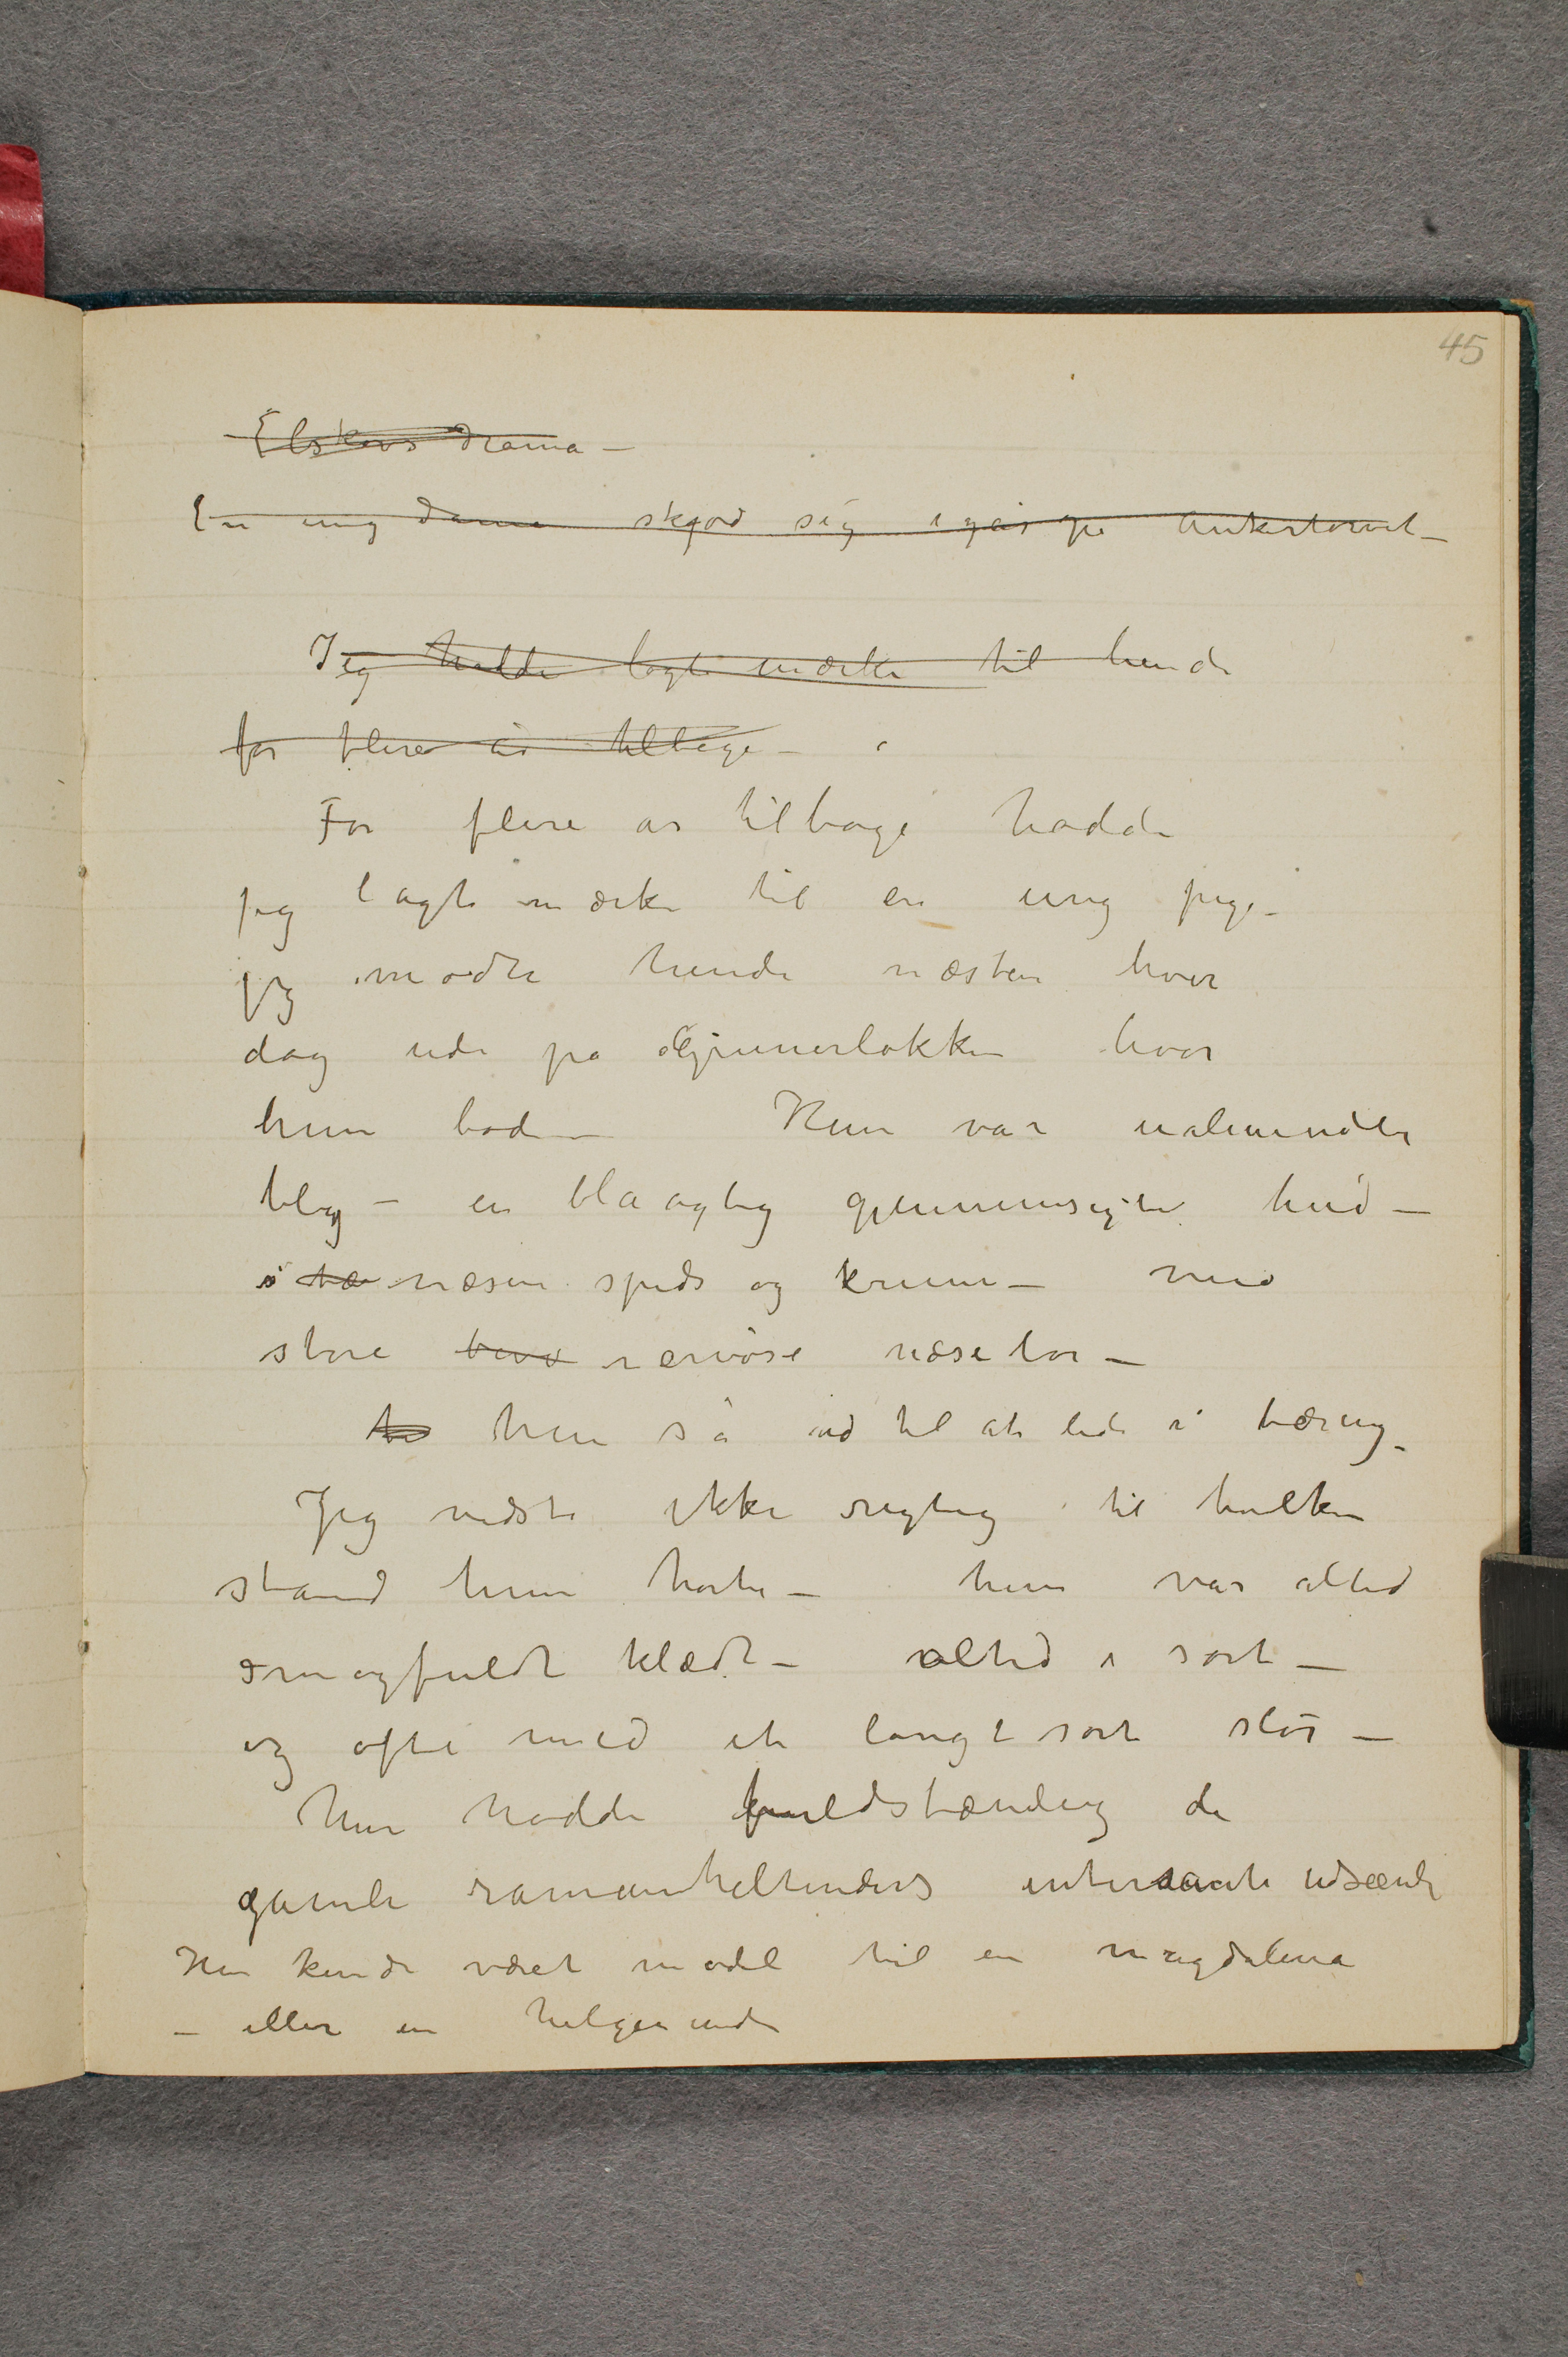 45
Elskovsdrama –
En ung dame skjød sig igår på Ankertorvet –
Jeg hadde lagt mærke til hende
for flere år tilbage –
For flere år tilbage hadde
jeg lagt mærke til en ung pige –
jeg mødte hende næsten hver
dag ude på Grünnerløkken hvor
hun bode – Hun var ualmindeli
bleg – en blåagtig gjennemsigtig hud –
næsen spids og krum – med
store nervøse næsebor –
hun så ud til at lide i tæring –
Jeg vidste ikke rigtig til hvilken
stand hun hørte – hun var altid
smagfuldt klædt – altid i sort –
og ofte med et langt sort slør –
hun hadde fuldstændig de
gamle romanheltinders intersante udseende
Hun kunde været model til en magdalena
– eller en helgeninde